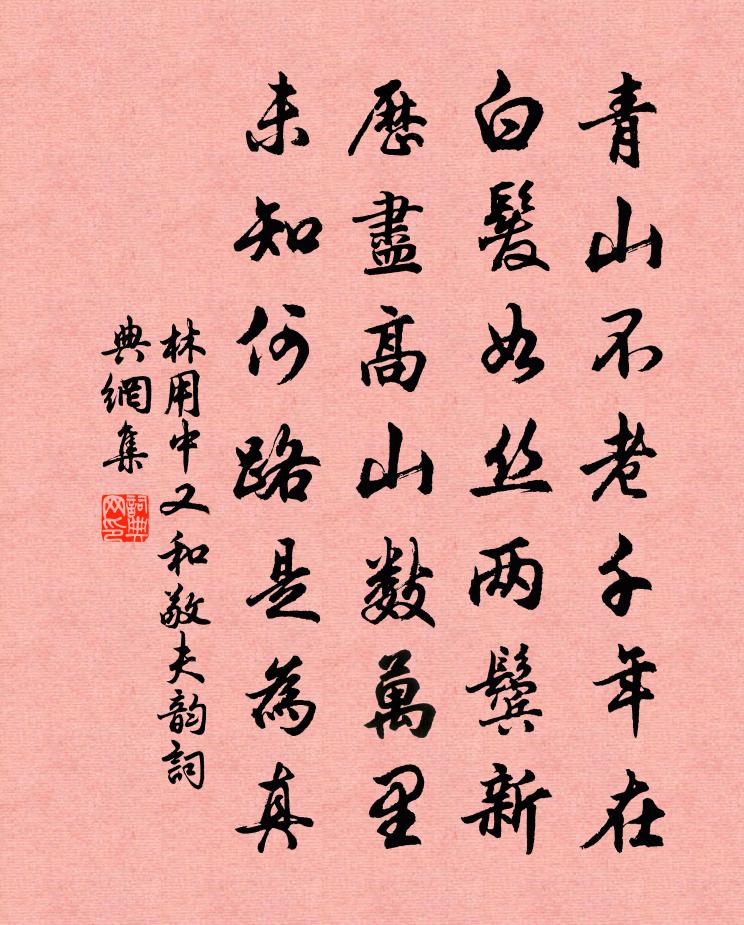 青山不老千年在
白髮如丝两鬢新
歷盡高山数萬里
未知何路是為真
林用中又和敬夫韵詞
典網集
詞典网印